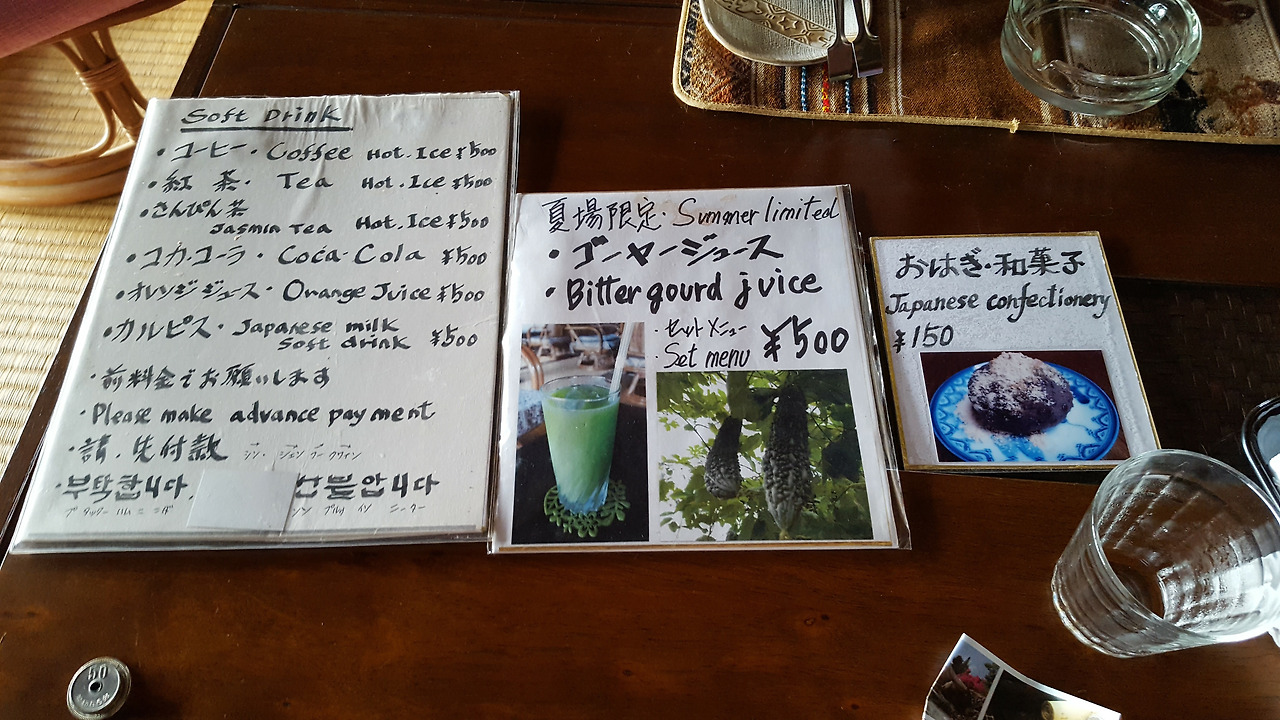 Soft Drink
・コーヒー・Coffee Hot.Ice ¥500
・紅茶・Tea Hot.Ice ¥500
・さんぴん茶
Jasmin Tea Hot.Ice ¥500
・コカ・コーラ・Coca-Cola ¥500
・オレンジジュース・Orange Juice ¥500
・カルピス・Japanese milk
Soft drink ¥500
・前料金でお願いします
・Please make advance payment
・請、先付款
・부탁합니다.
선불입니다
夏場限定・Summer limited
・ゴーヤージュース
・Bitter gourd juice
・セットメニュー
・Set menu ¥500
おはぎ・和菓子
Japanese confectionery
¥150
50